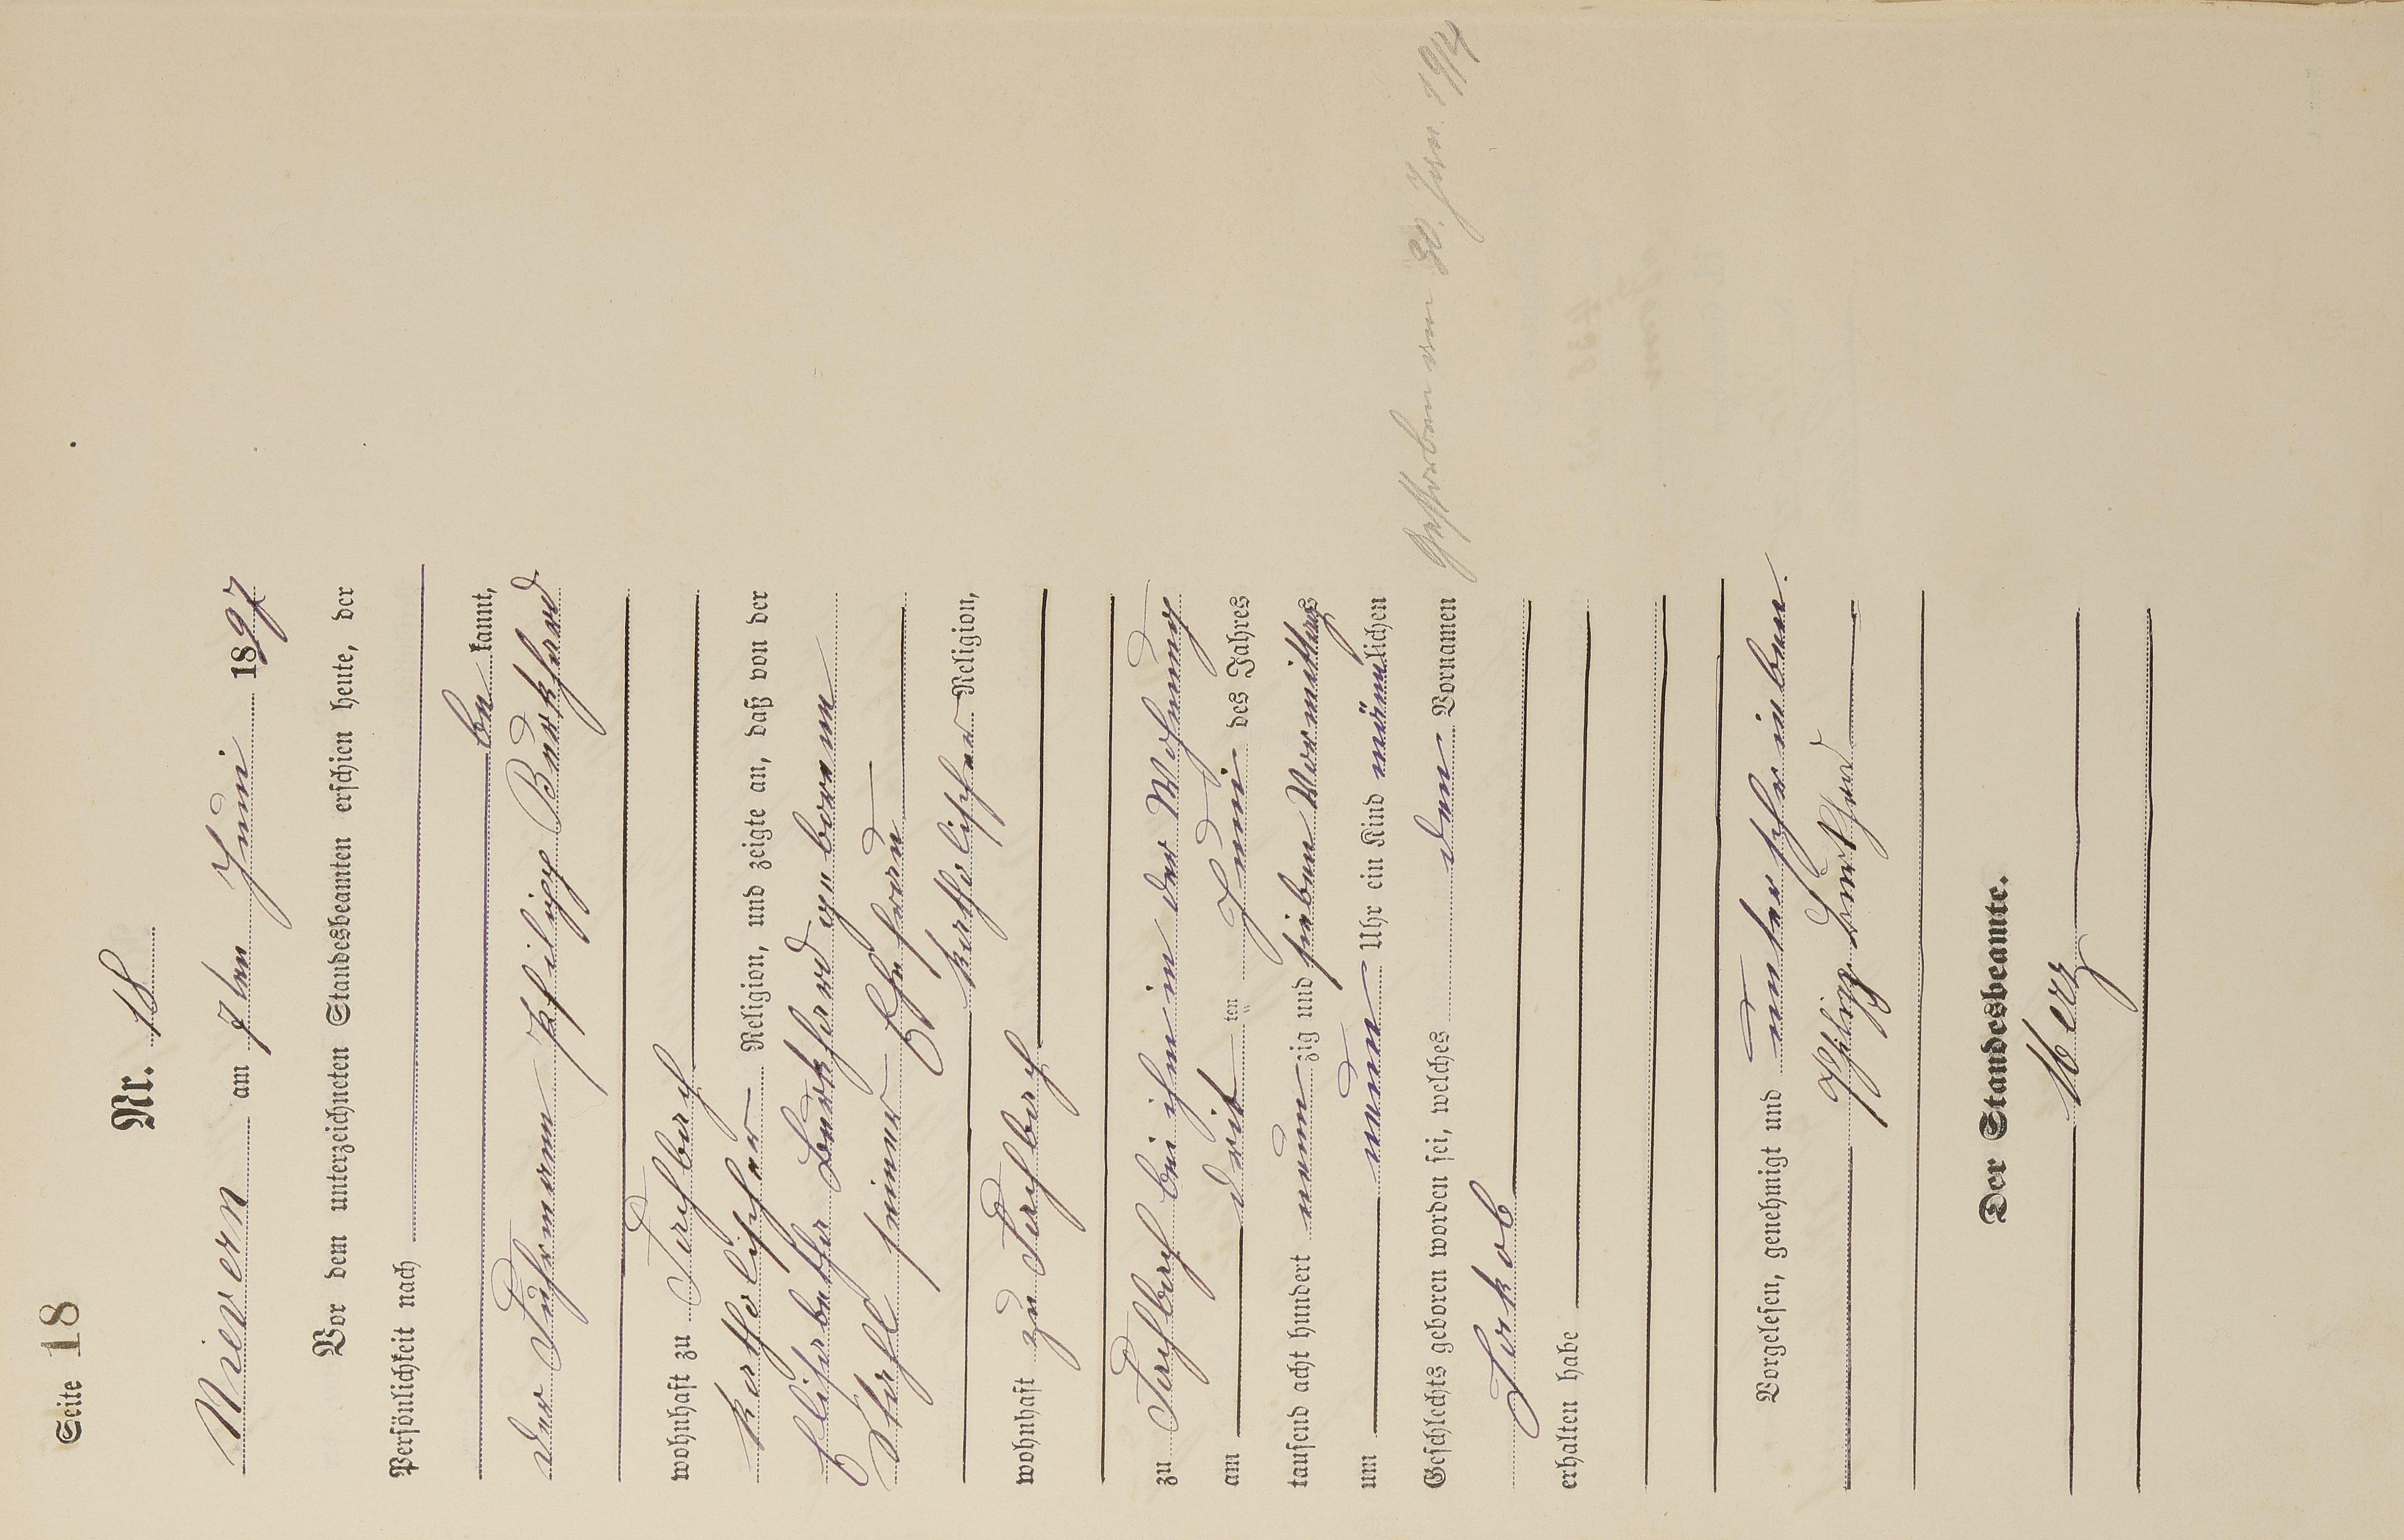 Seite 18
Nr. 18
Nievern am 7ten Juni 1897
Vor dem unterzeichneten Standesbeamten erschien heute, der
Persönlichkeit nach
be kannt,
der Fuhrmann Philipp Burkhard
wohnhaft zu Fachbach
katholischer Religion, und zeigte an, daß von der
Elisabetha Burkhard geborenen
seiner Ehefrau
katholischer Religion,
wohnhaft zu Fachbach
zu Fachbach bei ihm in der Wohnung
am drit ten Juni des Jahres
tausend acht hundert neun zig und sieben Vormittags
um neun Uhr ein Kind männlichen
Geschlechts geboren worden sei, welches den Vornamen
Jakob
erhalten habe
Vorgelesen, genehmigt und unterschrieben.
Philipp Burkhard
Der Standesbeamte.
Merz
Gestorben am 30. Jan. 19